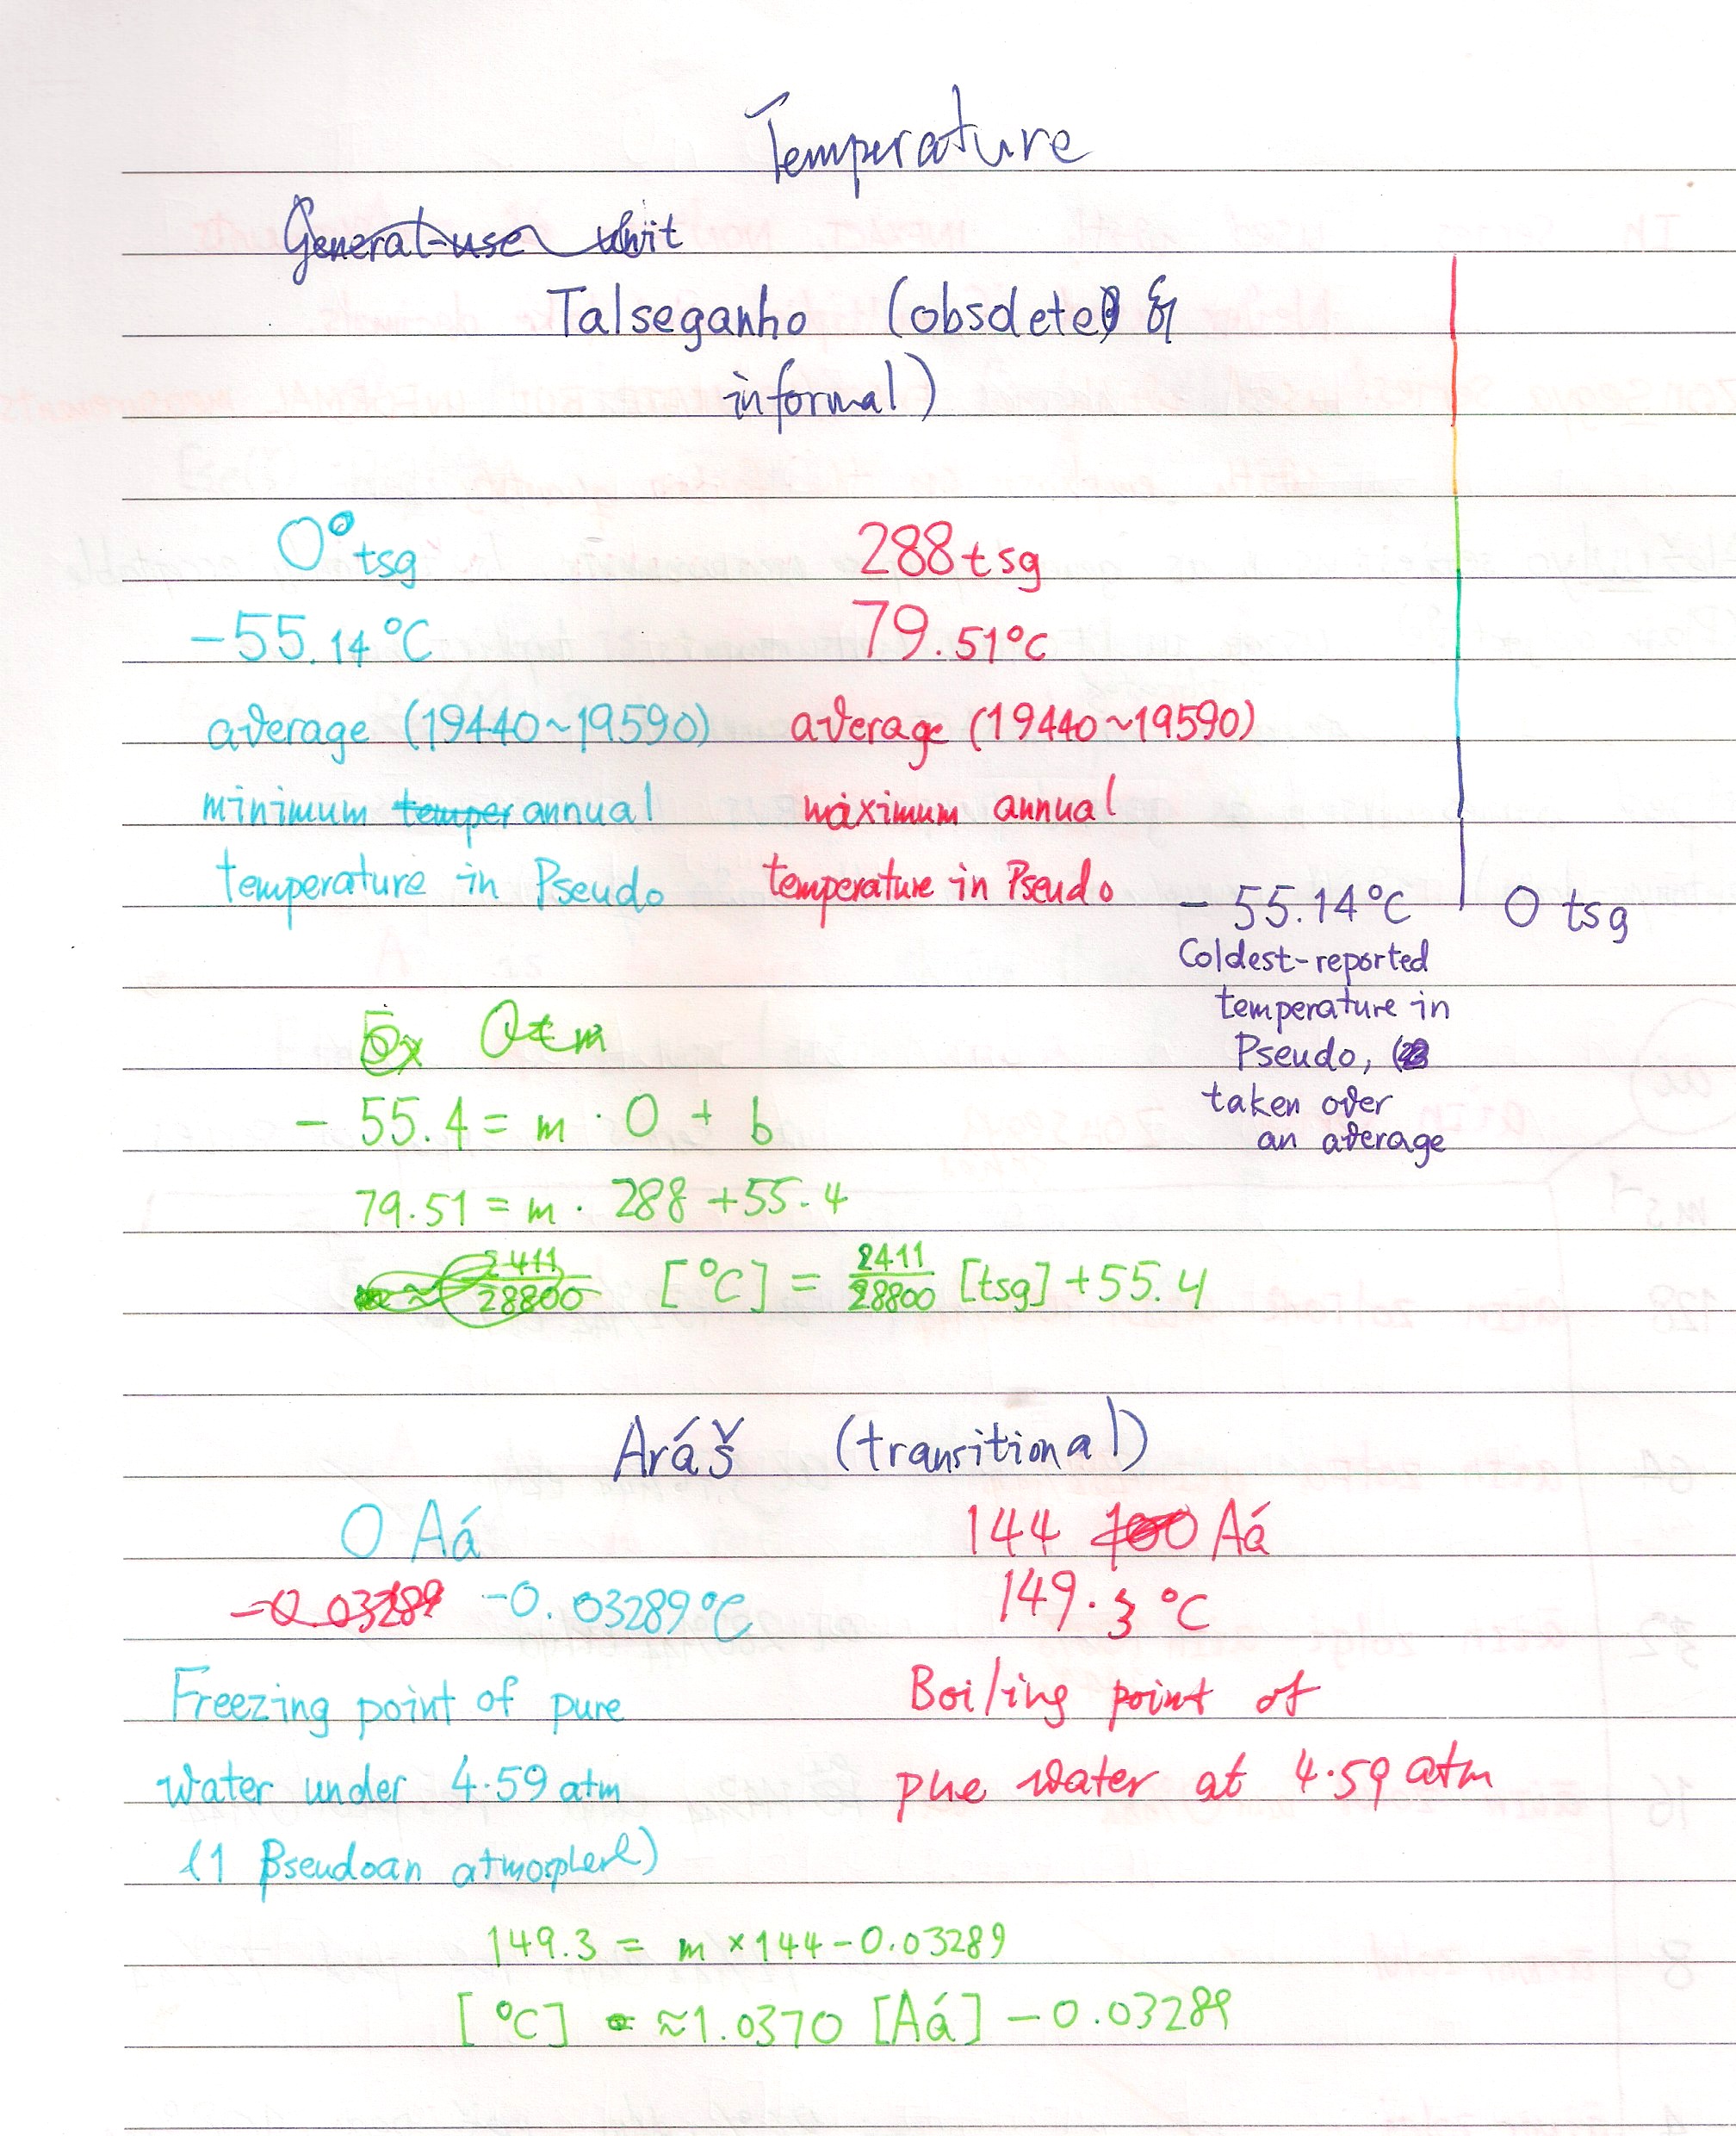 Temperature
General-use unit
Talseganho (obsolete &
informal)
0° tsg 288 tsg
-55.14 °C 79.51°C
average (19440~19590) average (19440~19590)
minimum temper annual maximum annual
temperature in Pseudo temperature in Pseudo
- 55.14°C 0 tsg
Coldest-reported
temperature in
Pseudo, (
taken over
an average
- 55.4 = m · 0 + b
79.51 = m · 288 + 55.4
2411/28800 [°C] = 2411/28800 [tsg] + 55.4
Aráš (transitional)
0 Aá 144 100 Aá
-0.03289 -0.03289°C 149.3 °C
Freezing point of pure Boiling point of
water under 4.59 atm pure water at 4.59 atm
(1 Pseudoan atmosphere)
149.3 = m × 144 - 0.03289
[°C] ≈ 1.0370 [Aá] - 0.03289